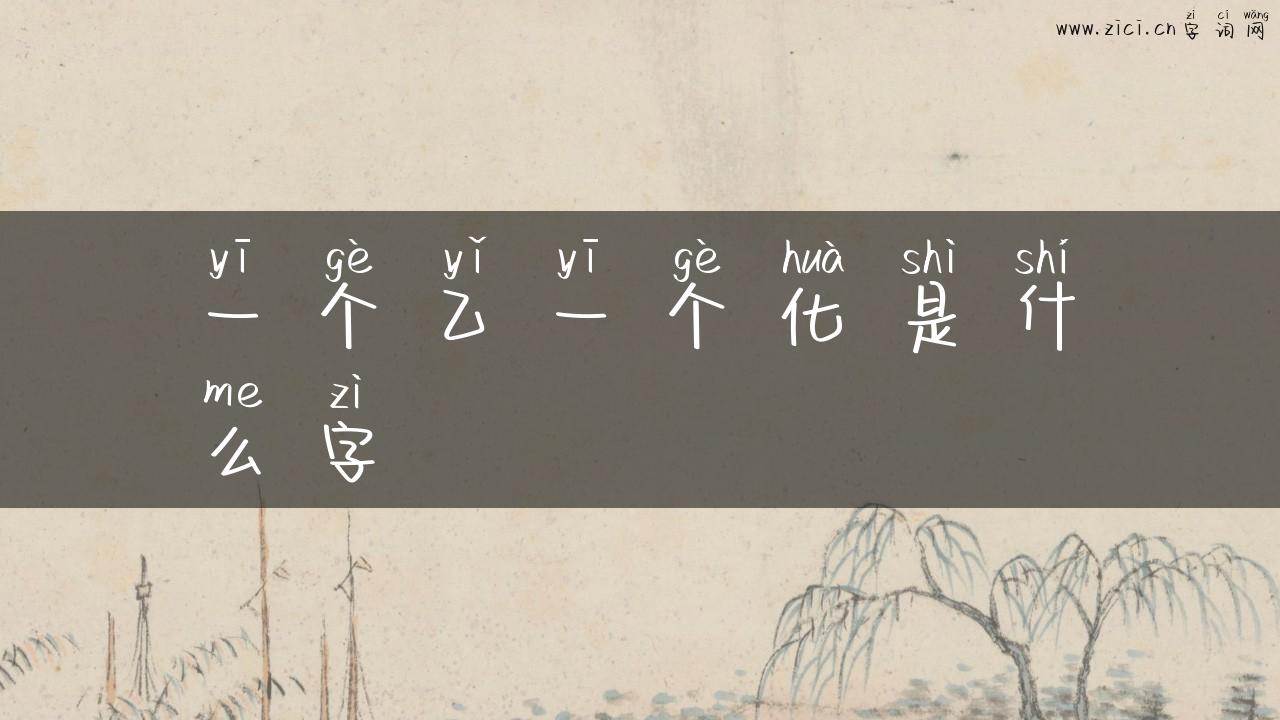 zì cí wǎng
www.zici.cn 字 词 网
yī gè yǐ yī gè huà shì shí
一 个 乙 一 个 化 是 什
me zì
么 字